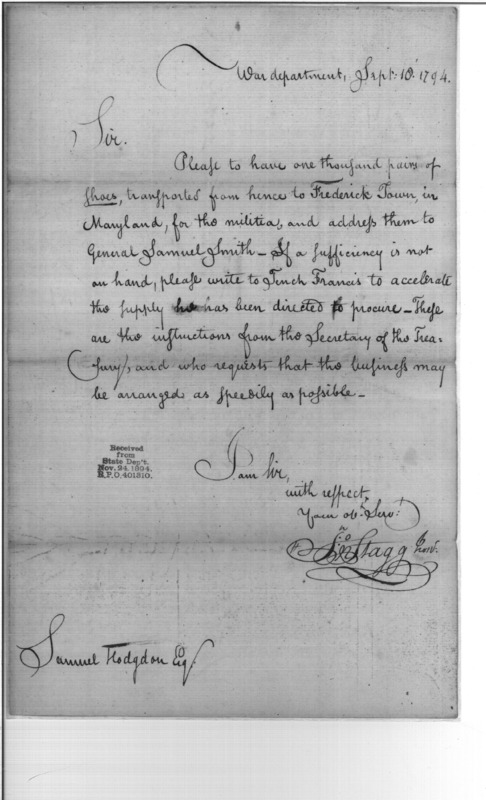 War department, Sept: 10: 1794.
Sir.
Please to have one thousand pairs of
shoes, transported from hence to Frederick Town, in
Maryland, for the militia, and address them to
General Samuel Smith - If a sufficiency is not
on hand, please write to Tench Francis to accelerate
the supply he has been directed to procure - These
are the instructions from the Secretary of the Trea-
sury, and who requests that the business may
be arranged as speedily as possible -
Received
from
State Dep't.
Nov. 24, 1894.
R.P.O. 401810.
I am Sir,
with respect,
Your ob. Serv:
Jno Stagg Junr.
Samuel Hodgdon Esq